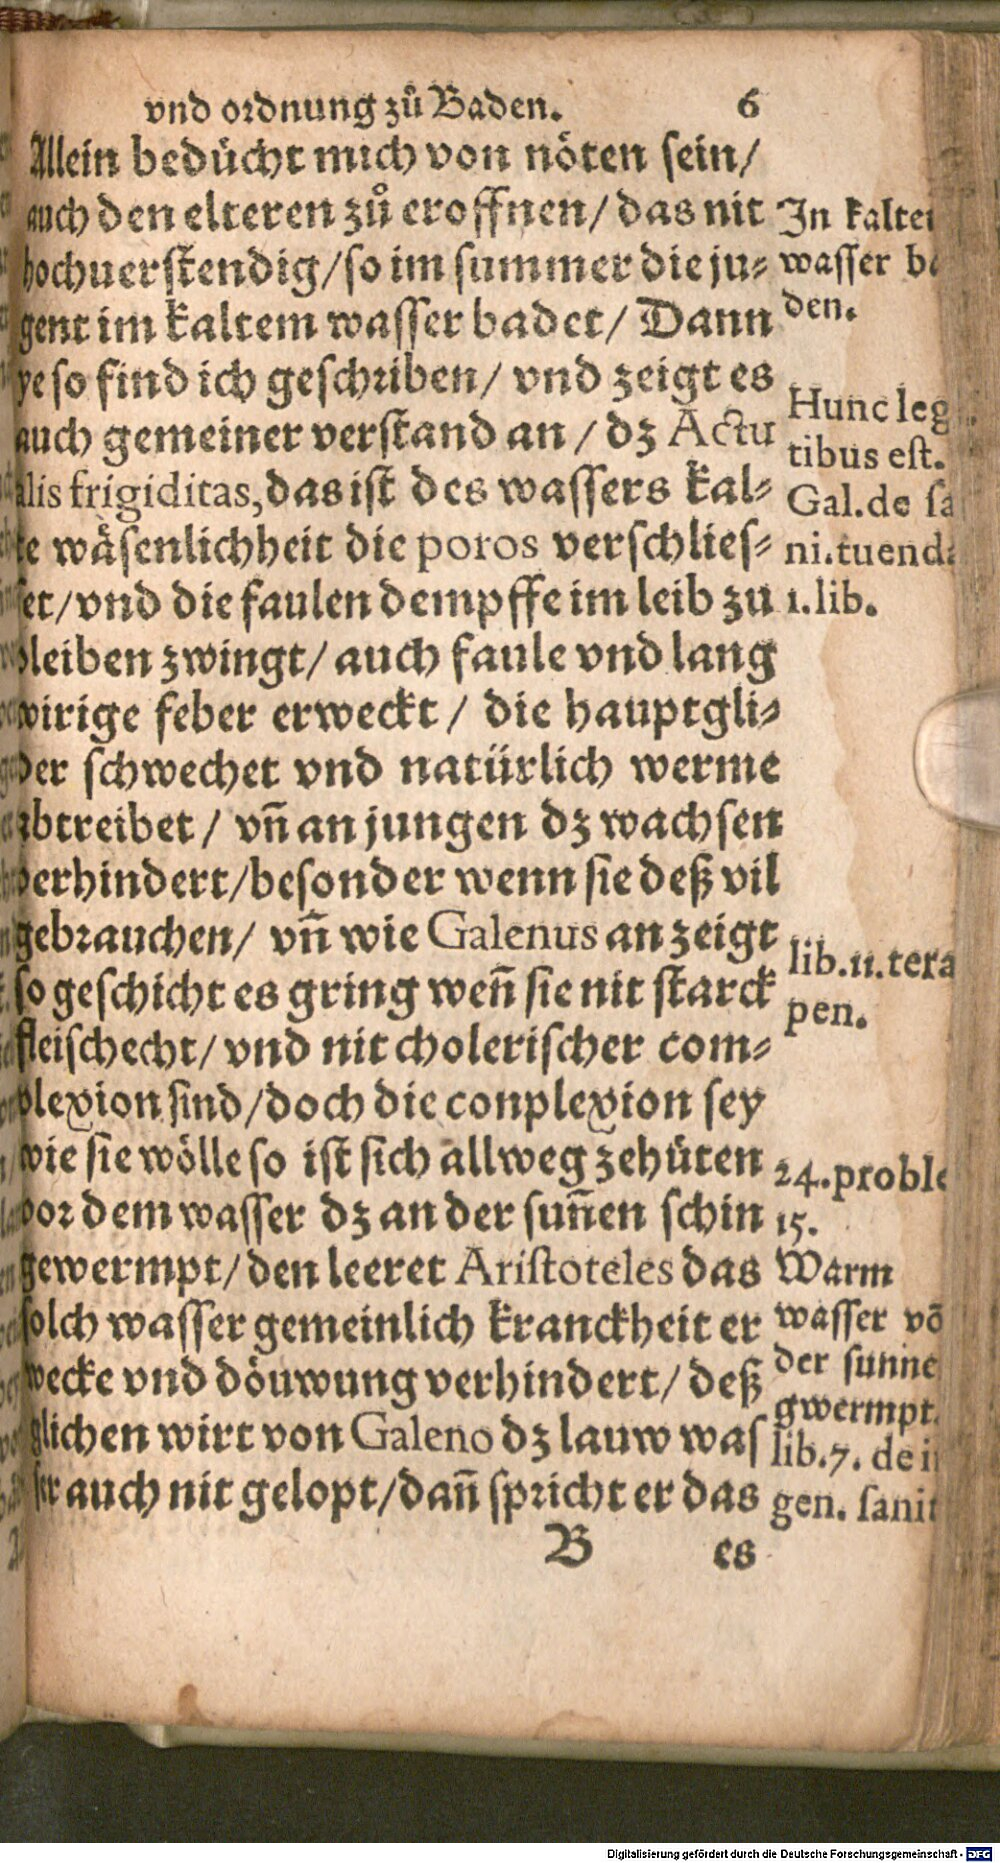 vnd ordnung zuͦ Baden. 6
Allein bedücht mich von nöten sein/
auch den elteren zuͦ eroffnen/ das nit
hochuerstendig/so im summer die ju⸗
gent im kaltem wasser badet/ Dann
ye so find ich geschriben/ vnd zeigt es
auch gemeiner verstand an / dz Actu
alis frigiditas, das ist des wassers kal⸗
te wäsenlichheit die poros verschlies⸗
set/vnd die faulen dempffe im leib zu
bleiben zwingt/ auch faule vnd lang
wirige feber erweckt / die hauptgli⸗
der schwechet vnd natürlich werme
abtreibet / vn̄ an jungen dz wachsen
verhindert/besonder wenn sie deß vil
gebrauchen/ vn̄ wie Galenus anzeigt
so geschicht es gring wen̄ sie nit starck
fleischecht/ vnd nit cholerischer com⸗
plexion sind/doch die conplexion sey
wie sie wölle so ist sich allweg zehüten
vor dem wasser dz an der sun̄en schin
gewermpt/ den leeret Aristoteles das
solch wasser gemeinlich kranckheit er
wecke vnd döuwung verhindert/ deß
glichen wirt von Galeno dz lauw was
ser auch nit gelopt/dan̄ spricht er das
B es
In kalte
wasser b
den.
Hunc leg
tibus est.
Gal.de sa
ni.tuend
1.lib.
lib.11.tera
pen.
24.proble
15.
Warm
wasser vō
der sunne
gwermpt.
lib.7. de i
gen. sanit
Digitalisierung gefördert durch die Deutsche Forschungsgemeinschaft - DFG